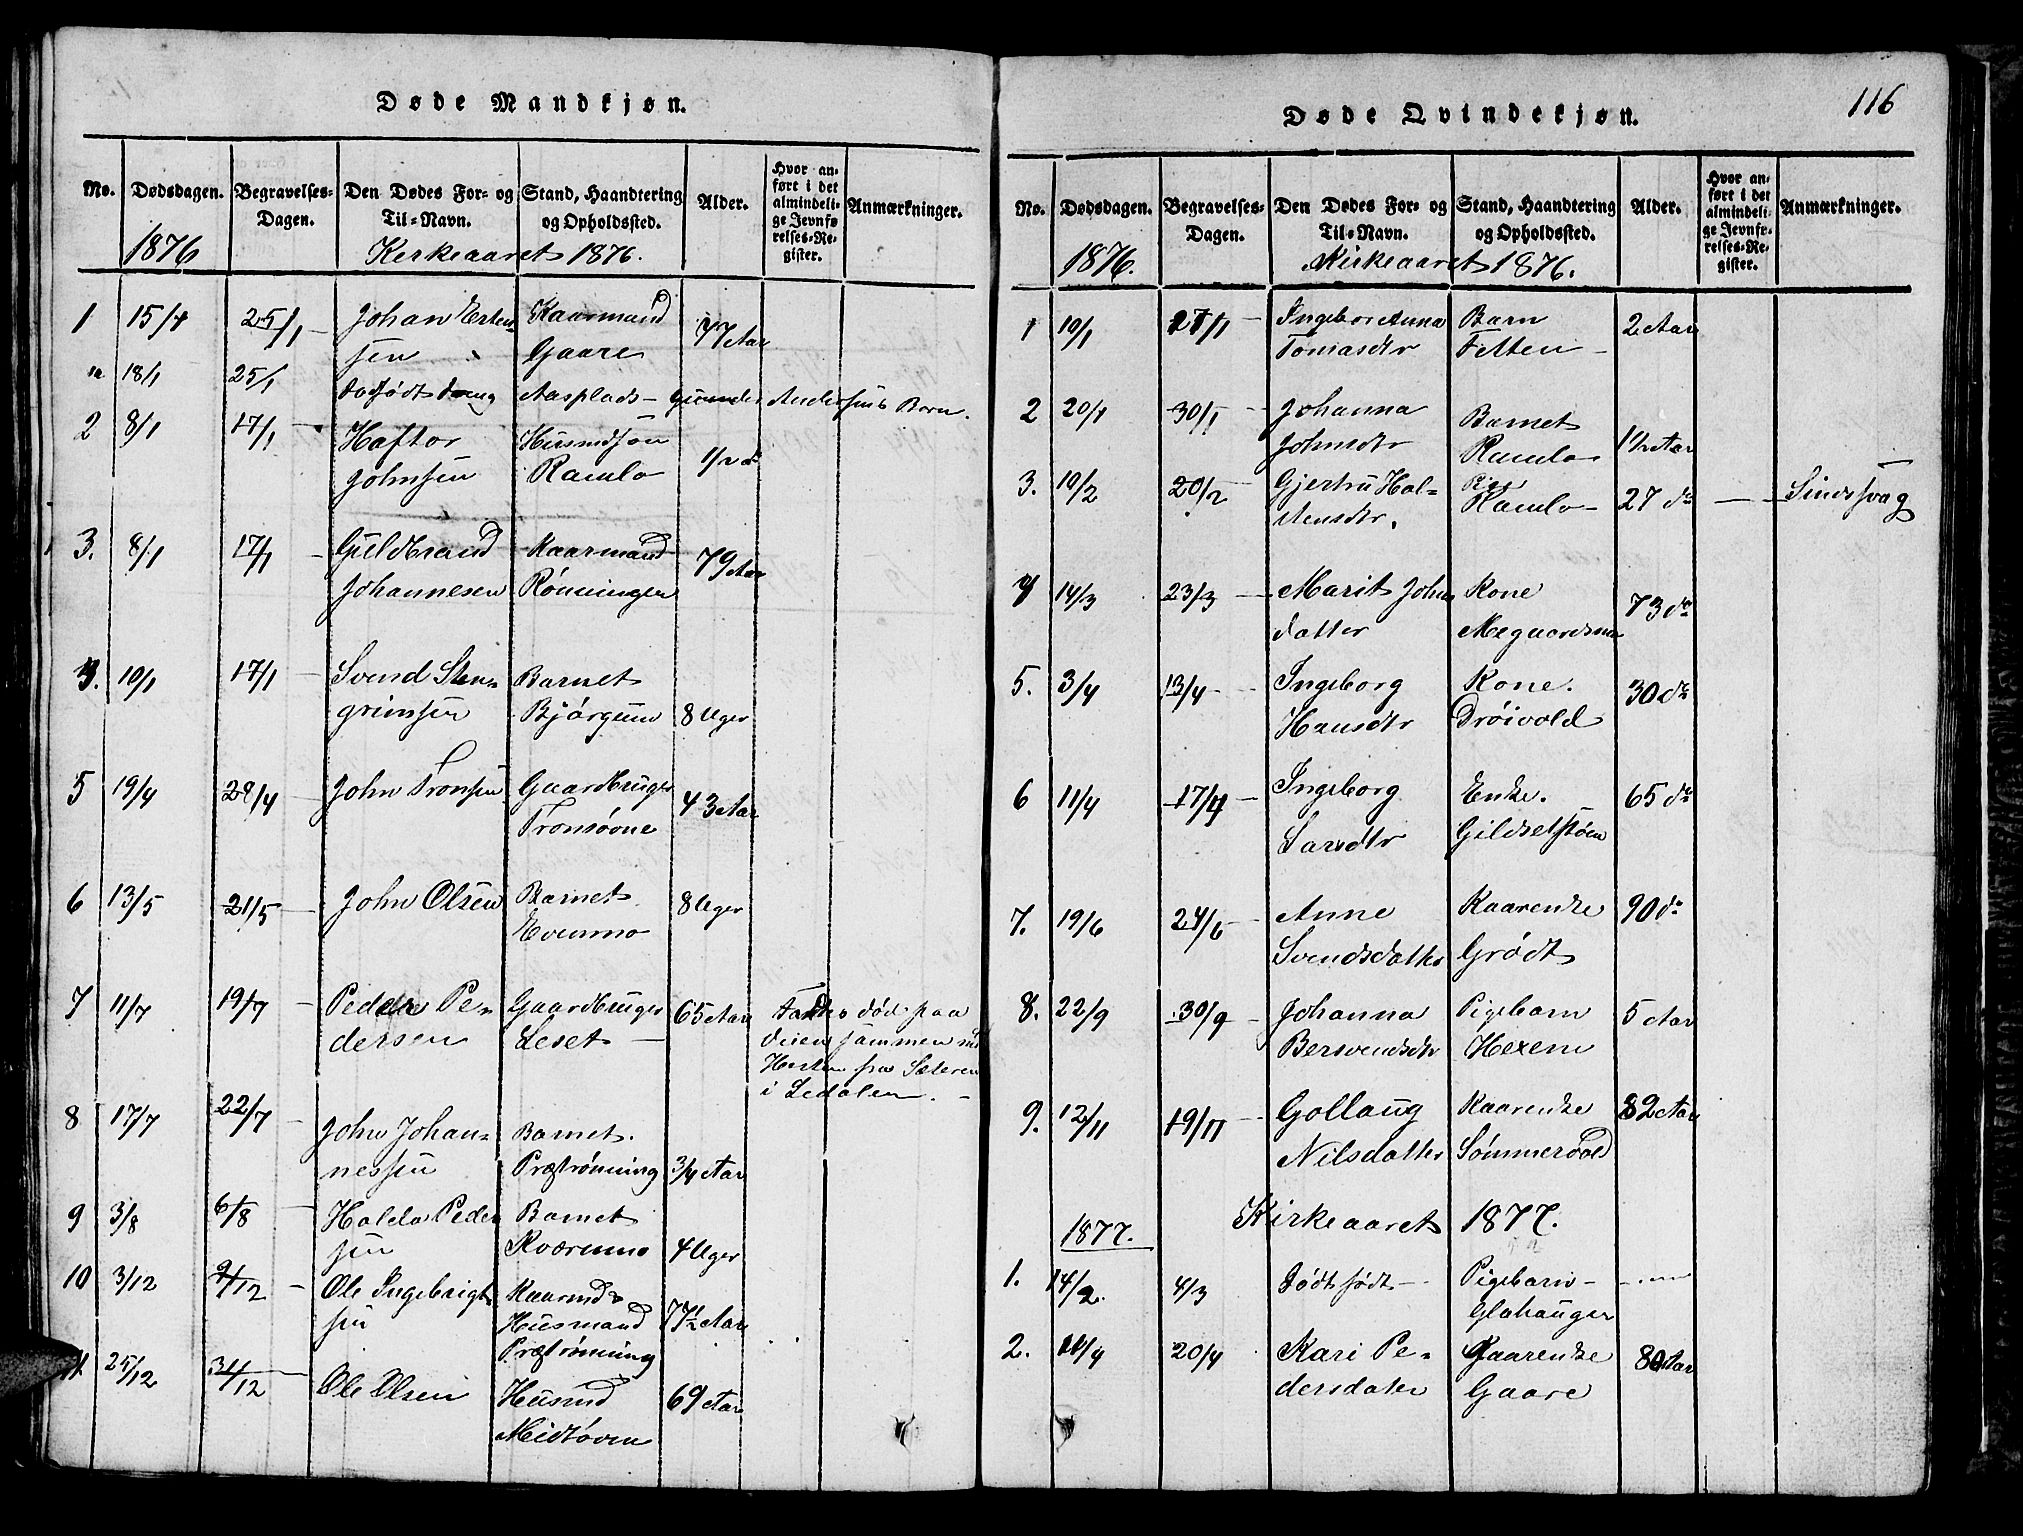 Døde Mandkjøn.
No. Dødsdagen. Begravelses-Dagen. Den Dødes For- og Til-Navn. Stand, Haandtering og Opholdssted. Alder. Hvor anført i det almindelige Jevnførelses-Register. Anmærkninger.
1876 Kirkeaaret 1876.
1 15/1 25/1 Johan Esten- Kaarmand 77 Aar
sen Gaare
18/1 25/1 dødfødt Dreng Aasplads - Gunder Andersens Barn.
2 8/1 17/1 Haftor Husmdsøn 1/2 do
Johnsen Ramlo
3. 8/1 17/1 Guldbrand Kaarmand 79 Aar
Johannesen Rönningen
4. 10/1 17/1 Svend Sten- Barnet
grimsen Bjørgum 8 Uger
5 19/4 28/4 John Tronsen Gaardbruger 43 Aar
Tronsövne
6 13/5 21/5 John Olsen Barnet 8 Uger
Evenmo
7 11/7 19/7 Peder Pe- Gaardbruger 65 Aar død paa
dersen Leset Veien sammen
Hesten fra Sæteren
i Ledalen.
8 17/7 22/7 John Johan- Barnet.
nessen Præströnning 3/4 Aar
9 3/8 6/8 Haldo Peder- Barnet
sen Kværnmo 4 Uger
10 3/12 9/12 Ole Ingebrigt- Kaarmd
sen Husmand 77 1/2 Aar
Præströnning
11. 25/12 31/12 Ole Olsen Husmd 69 Aar
Midtöven
116
Døde Qvindekjøn.
No. Dødsdagen. Begravelses-Dagen. Den Dødes For- og Til-Navn. Stand, Haandtering og Opholdssted. Alder. Hvor anført i det almindelige Jevnførelses-Register. Anmærkninger.
1876. Kirkeaaret 1876.
1 10/1 17/1 Ingebor Anna Barn 2 Aar
Tomasdtr Tetten
2 20/1 30/1 Johanna Barnet
Johnsdtr Ramlo 1 1/2 Aar
3. 10/2 20/2 Gjertru Hal- Pige 27 do Sindssvag
stensdtr. Ramlo
4 14/3 23/3 Marit John Kone 73 do
datter Megaardsmo
5. 3/4 13/4 Ingeborg Kone. 30 do
Hansdtr Dröivold
6 11/4 17/4 Ingeborg Enke. 65 do
Larsdtr Gildsetstöen
7. 19/6 24/6 Anne Kaarenke 90 do
Svendsdatter Grödt
8. 22/9 30/9 Johanna Pigebarn 5 Aar
Bersvendsdtr Hexem
9. 12/11 19/11 Gollaug Kaarenke 82 Aar
Nilsdatter Sömmervold
1877. Kirkeaaret 1877.
1. 14/2. 4/3 Dödtfödt Pigebarn
Glahauger
2. 11/4 20/4 Kari Pe- Kaarenke 80 Aar
dersdater Gaare